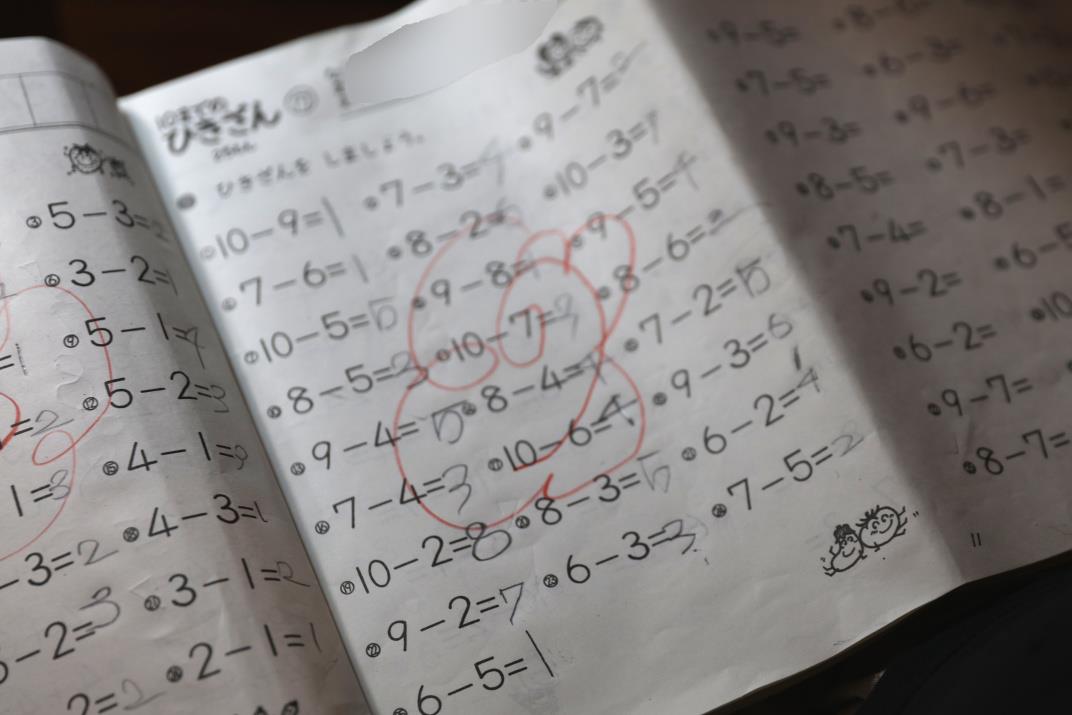 10までの
ひきざん
ひきざんを しましょう。
10−9=1
7−3=4
9−7=2
7−6=1
8−2=6
10−3=7
10−5=5
9−8=1
9−5=4
8−5=3
10−7=3
8−6=2
9−4=5
8−4=4
7−2=5
7−4=3
10−6=4
9−3=6
10−2=8
8−3=5
6−2=4
9−2=7
6−3=3
7−5=2
6−5=1
5−3=2
3−2=1
5−1=4
5−2=3
4−1=3
4−3=1
3−1=2
2−1=1
=2
1=3
−3=2
−2=3
2=2
9−5=
7−5=
6−3=
9−3=
9−6=
8−5=
7−3=
7−4=
8−1=
9−2=
6−5
6−2=
10
9−7=
8−7=
11